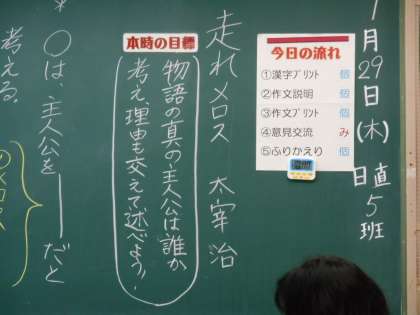 1月29日(木) 日直5班
今日の流れ
①漢字プリント 個
②作文説明 個
③作文プリント 個
④意見交流 み
⑤ふりかえり 個
走れメロス 太宰治
本時の目標
物語の真の主人公は誰か
考え、理由も交えて述べよう!
*〇は、主人公を──だと
考える。